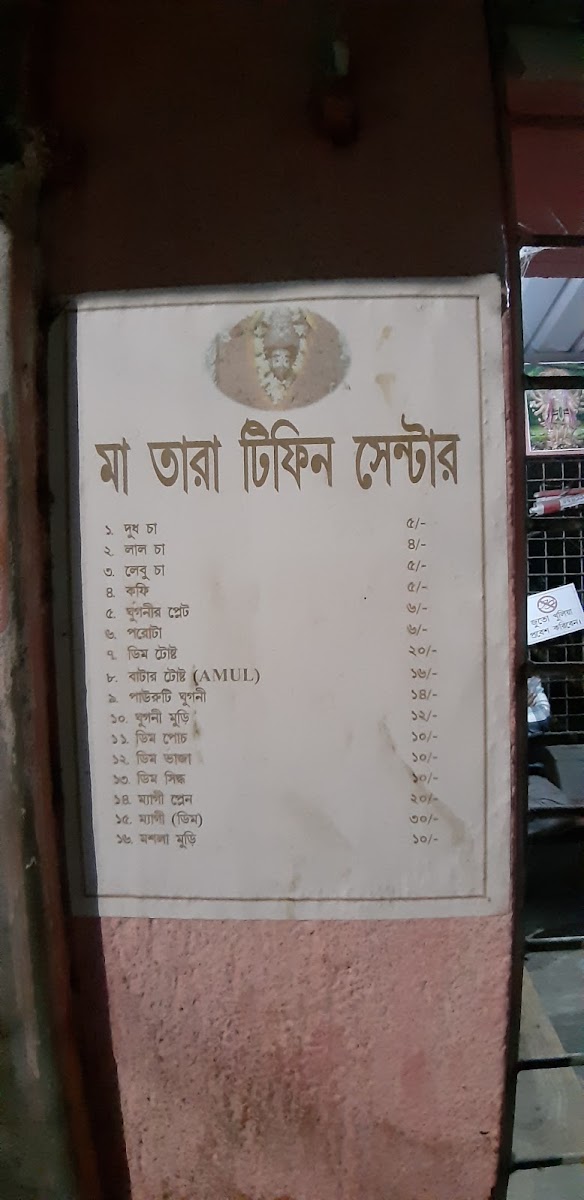 মা তারা টিফিন সেন্টার
১. দুধ চা ৫/-
২. লাল চা ৪/-
৩. লেবু চা ৫/-
৪. কফি ৫/-
৫. ঘুগনীর প্লেট ৬/-
৬. পরোটা ৬/-
৭. ডিম টোষ্ট ২০/-
৮. বাটার টোষ্ট (AMUL) ১৬/-
৯. পাউরুটি ঘুগনী ১৪/-
১০. ঘুগনী মুড়ি ১২/-
১১. ডিম পোচ ১০/-
১২. ডিম ভাজা ১০/-
১৩. ডিম সিদ্ধ ১০/-
১৪. ম্যাগী প্লেন ২০/-
১৫. ম্যাগী (ডিম) ৩০/-
১৬. মশলা মুড়ি ১০/-
জুতো খুলিয়া
প্রবেশ করিবেন।